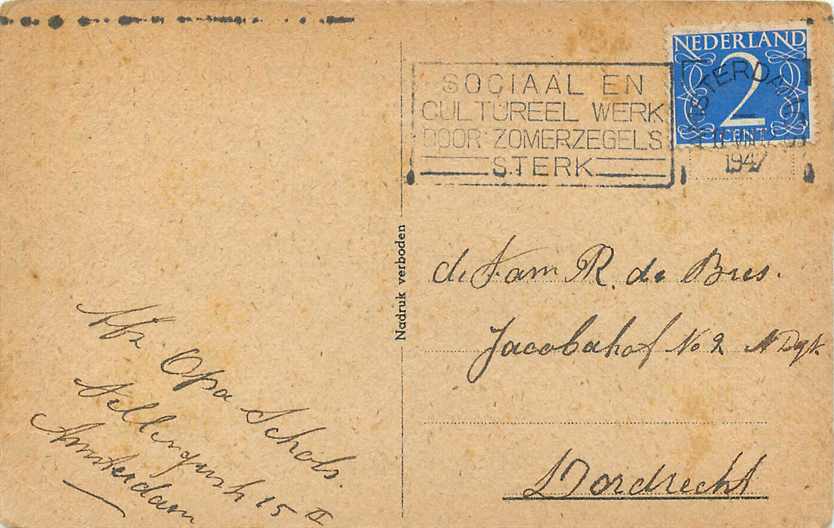 SOCIAAL EN
CULTUREEL WERK
DOOR ZOMERZEGELS
STERK
NEDERLAND
2
CENT
AMSTERDAM
1947
Nadruk verboden
de Fam R. de Bres.
Jacobahof No 2
Dordrecht
Afz Opa Schols.
15 II
Amsterdam